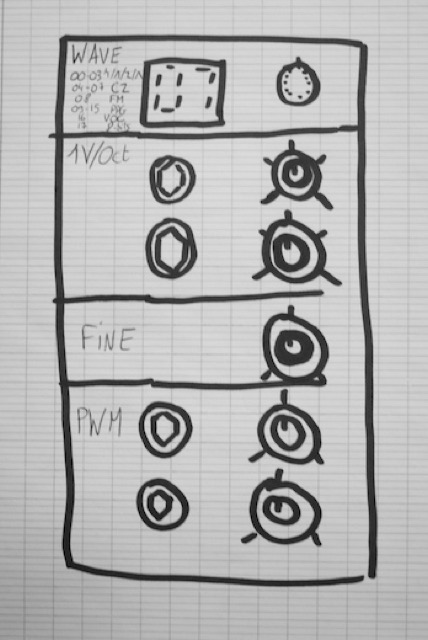 WAVE
00-03
04-07 CZ
08 FM
09-15
16 VOC
17
1V/Oct
FiNE
PWM